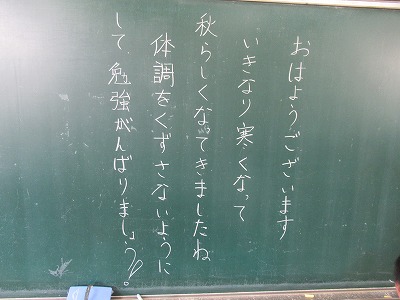 おはようございます
いきなり寒くなって
秋らしくなってきましたね
体調をくずさないように
して、勉強がんばりましょう!!。